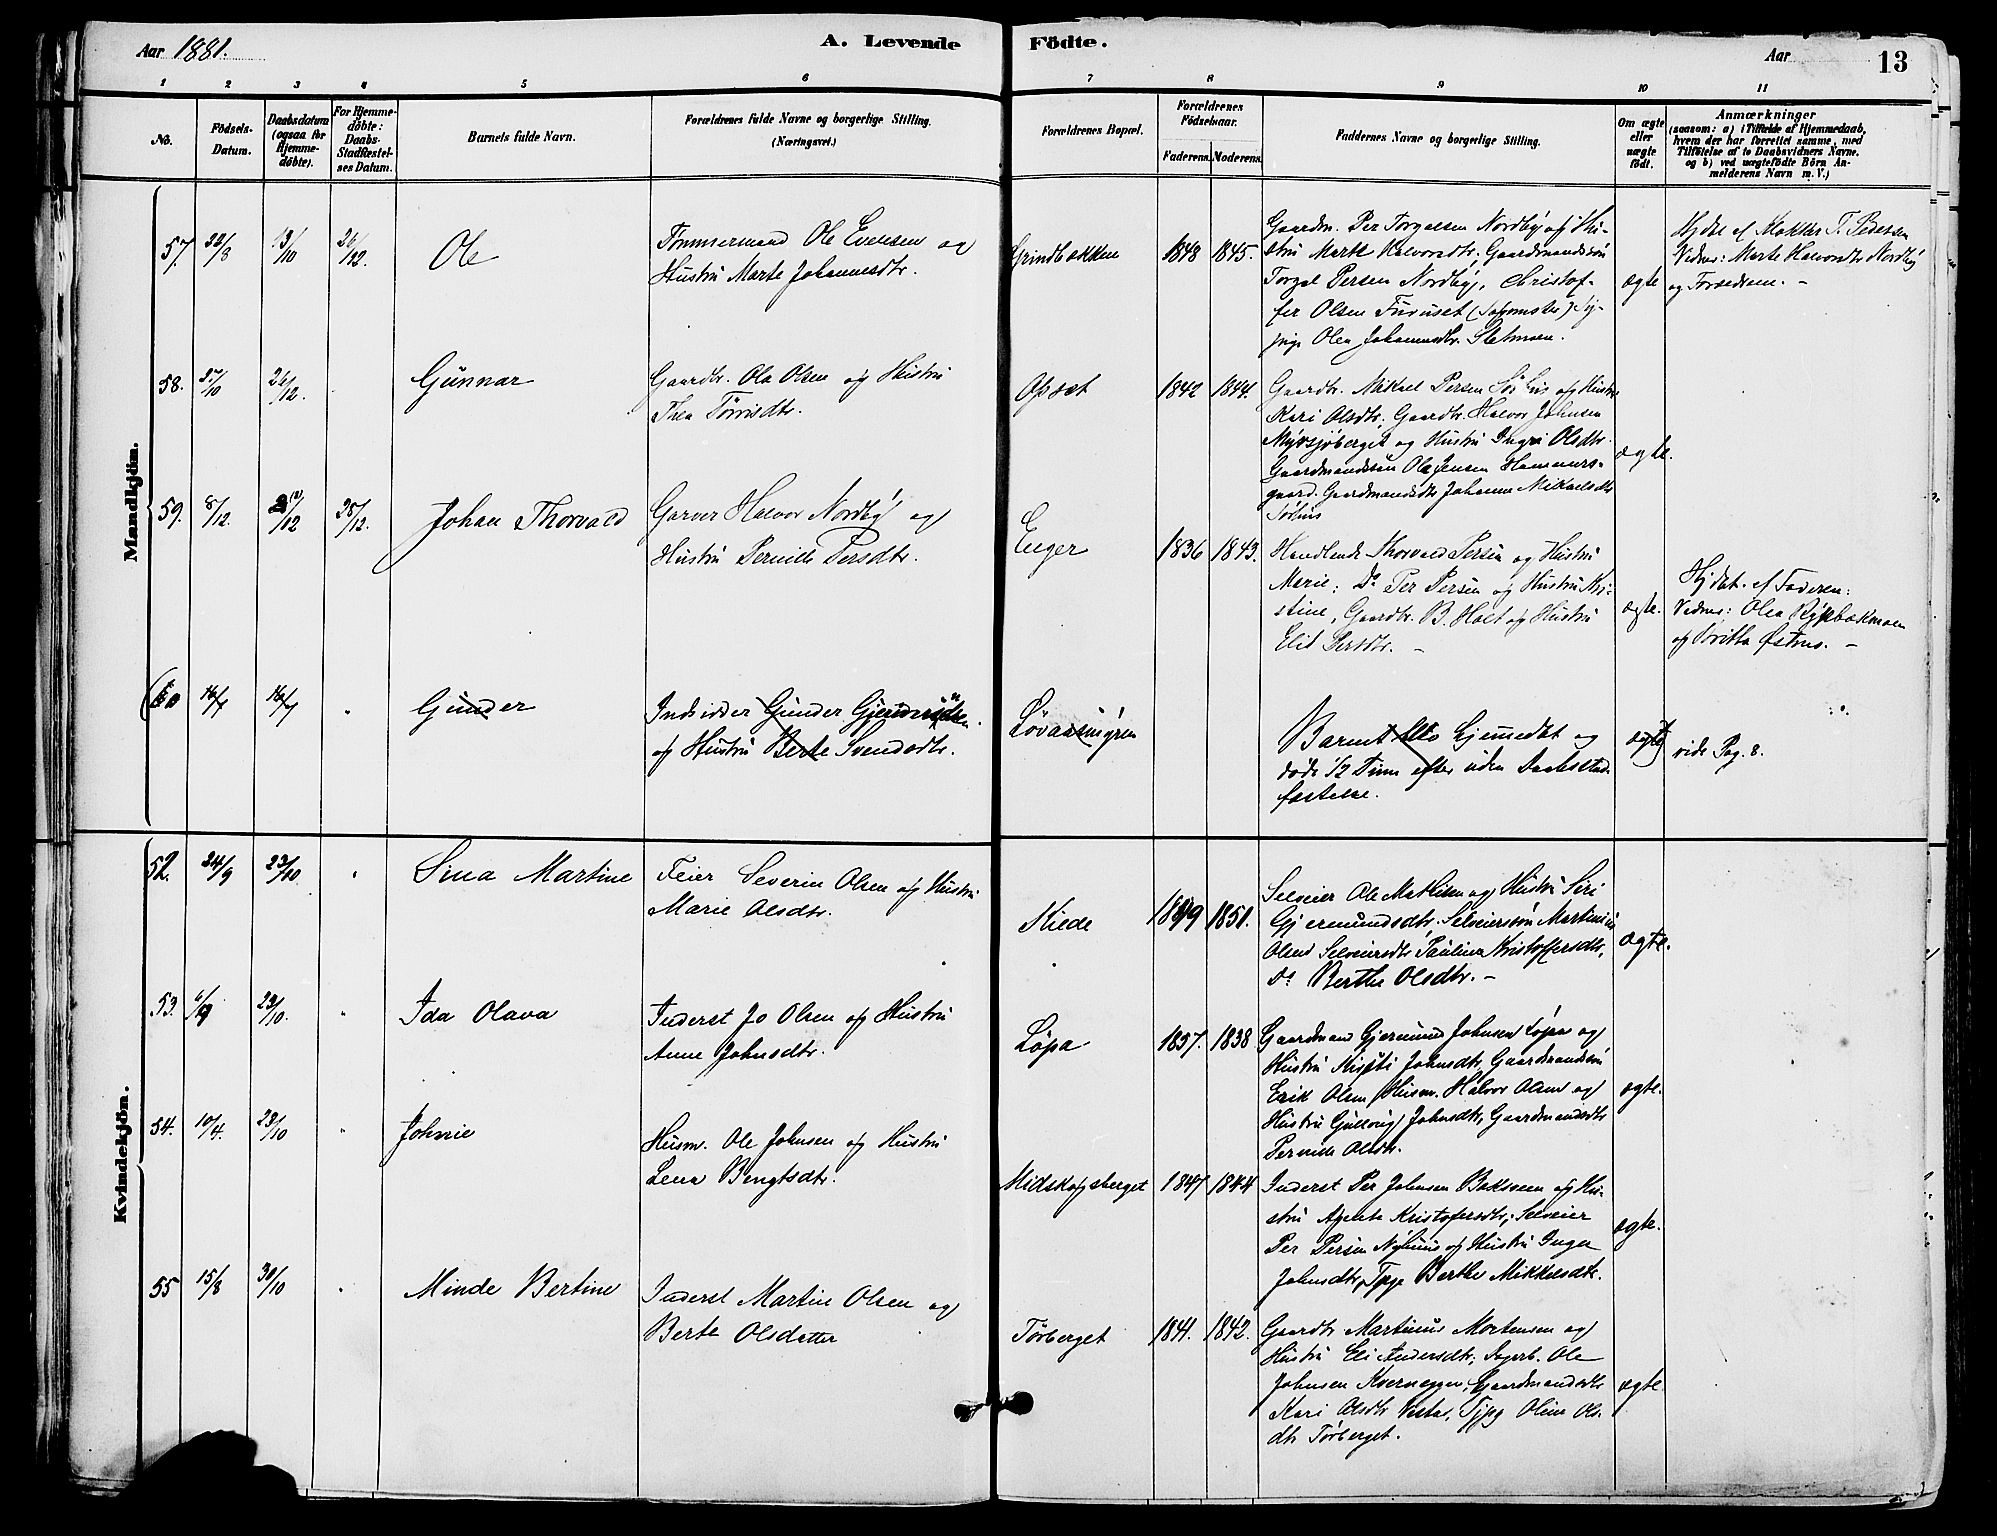 Aar 1881.
A. Levende Födte.
Aar
13
1 2 3 4 5 6 7 8 9 10 11
No.
Födsels-Datum.
Daabsdatum (ogsaa for Hjemme-döbte).
For Hjemme-döbte: Daabs-Stadfæstel-ses Datum.
Barnets fulde Navn.
Forældrenes fulde Navne og borgerlige Stilling. (Næringsvei.)
Forældrenes Bopæl.
Forældrenes Födselsaar.
Faderens. Moderens.
Faddernes Navne og borgerlige Stilling.
Om ægte eller uægte födt.
Anmærkninger
(saasom: a) i Tilfælde af Hjemmedaab, hvem der har forrettet samme, med Tilföielse af to Daabsvidners Navne, og b) ved uægtefödte Börn An-melderens Navn m. V.)
Mandkjön.
57. 22/8 13/10 26/12. Ole
Tømmermand Ole Evensen og
Hustru Marte Johannesdtr.
Grindbakken 1848 1845.
Gaardm. Per Torgalsen Nordby og Hu-
stru Marte Halvorsdtr. Gaardmandssøn
Torgal Persen Nordby, Christof-
fer Olsen Furuset
Olea Johannesdtr. Sletmoen.
ægte
Hjdbt af Klokker T. Pedersen
Vidner: Marte Halvorsdtr Nordby
og Forældrene. -
58. 27/10 26/12. Gunnar
Gaardbr. Ola Olsen og Hustru
Thea Tørrisdtr.
Opset 1842 1844.
Gaardbr. Mikael Persen Sørhus og Hustru
Kari Olsdtr., Gaardbr. Halvor Johnsen
Myrsjøberget og Hustru Ingri Olsdtr.
Gaardmandssøn Ole Jensen Hammers-
gaard. Gaardmandsdtr Johanne Mikaelsdtr
Sørhus
ægte.
59. 8/12. 12 25/12. Johan Thorvald
Garver Halvor Nordby og
Hustru Pernille Persdtr.
Enger 1836 1843.
Handlende Thorvald Persen og Hustru
Marie; Do Per Persen og Hustru Kri-
stine, Gaardbr. B. Holt og Hustru
Elit Persdtr. -
ægte.
Hjdbt. af Faderen:
Vidner: Olea Rysbakmoen
og Britta Østmo. -
(60 16/4 16/4 " Gunder
Indsidder Gunder Gjerdersen.
og Hustru Berte Svendsdtr.
Løvaasmyren
Barnet blev hjemmedbt og
døde 1/2 Time efter uden Daabsstad-
fæstelse.
ægte)
vide Pag. 8.
Kvindekjön.
52. 24/9 23/10. " Sina Martine
Feier Severin Olsen og Hustru
Marie Olsdtr.
Kilde 1849 1851.
Selveier Ole Mathisen og Hustru Siri
Gjermundsdtr. Selveiersøn Martinius
Olsen Selveiersdtr Pauline Kristoffersdtr,
Do Berthe Olsdtr. -
ægte.
53. 6/9 23/10. " Ida Olava
Inderst Jo Olsen og Hustru
Anne Johnsdtr.
Løpa 1857. 1838
Gaardmand Gjermund Johnsen Løpa og
Hustru Kisti Johnsdtr, Gaardmandssøn
Erik Olsen, Husm. Halvor Olsen og
Hustru Gullaug Johnsdtr, Gaardmandsdtr
Pernille Olsdtr.
ægte.
54. 10/4. 23/10 " Johnie
Husm. Ole Johnsen og Hustru
Lena Bengtsdtr.
Midskogsberget 1847 1844
Inderst Per Johnsen Bakveen og Hu-
stru Agnete Kristofersdtr; Selveier
Per Persen Nyhuus og Hustru Inga
Johnsdtr, Tpge Berthe Mikkelsdtr.
ægte.
55 15/8 30/10 " Minde Bertine
Inderst Martin Olsen og
Berte Olsdatter
Tørberget 1841. 1842.
Gaardbr Martinus Mortensen og
Hustru Eli Andersdtr; Ole
Johnsen Kverneggen, Gaardmandsdtr
Kari Olsdtr Vestad, Tjpg Oline Ols-
dtr Tørberget.
ægte.